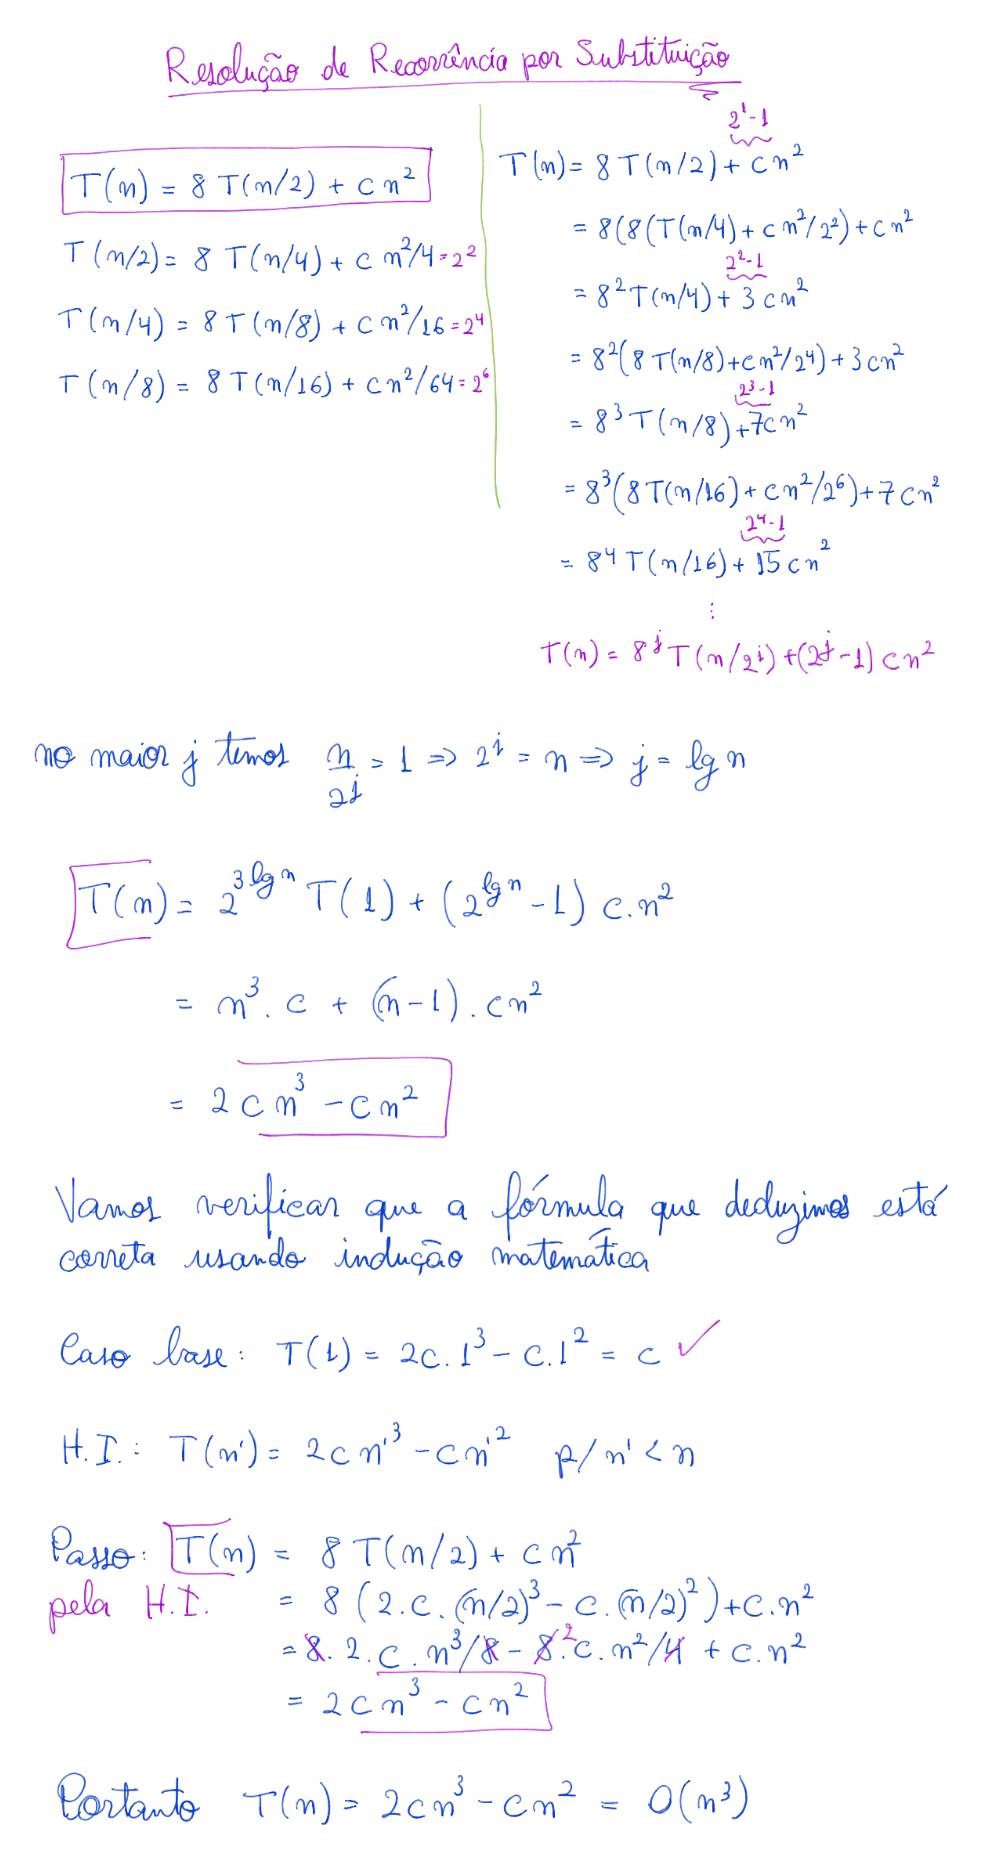 Resolução de Recorrência por Substituição
T(n) = 8 T(n/2) + c n²
T(n/2) = 8 T(n/4) + c n²/4 = 2²
T(n/4) = 8 T(n/8) + c n²/16 = 2⁴
T(n/8) = 8 T(n/16) + c n²/64 = 2⁶
2¹-1
T(n) = 8 T(n/2) + c n²
= 8(8(T(n/4) + c n²/2²) + c n²
2²-1
= 8² T(n/4) + 3 c n²
= 8²(8 T(n/8) + c n²/2⁴) + 3 c n²
2³-1
= 8³ T(n/8) + 7 c n²
= 8³(8 T(n/16) + c n²/2⁶) + 7 c n²
2⁴-1
= 8⁴ T(n/16) + 15 c n²
⋮
T(n) = 8ʲ T(n/2ʲ) + (2ʲ-1) c n²
no maior j temos n/2ʲ = 1 ⇒ 2ʲ = n ⇒ j = lg n
T(n) = 2^(3 lg n) T(1) + (2^(lg n) - 1) c.n²
= n³. c + (n-1). c n²
= 2 c n³ - c n²
Vamos verificar que a fórmula que deduzimos está
correta usando indução matemática
Caso base: T(1) = 2c.1³ - c.1² = c ✓
H.I.: T(n') = 2 c n'³ - c n'² p/ n' < n
Passo: T(n) = 8 T(n/2) + c n²
pela H.I. = 8 (2.c.(n/2)³ - c.(n/2)²) + c.n²
= 8. 2. c. n³/8 - 8.² c. n²/4 + c. n²
= 2 c n³ - c n²
Portanto T(n) = 2 c n³ - c n² = O(n³)